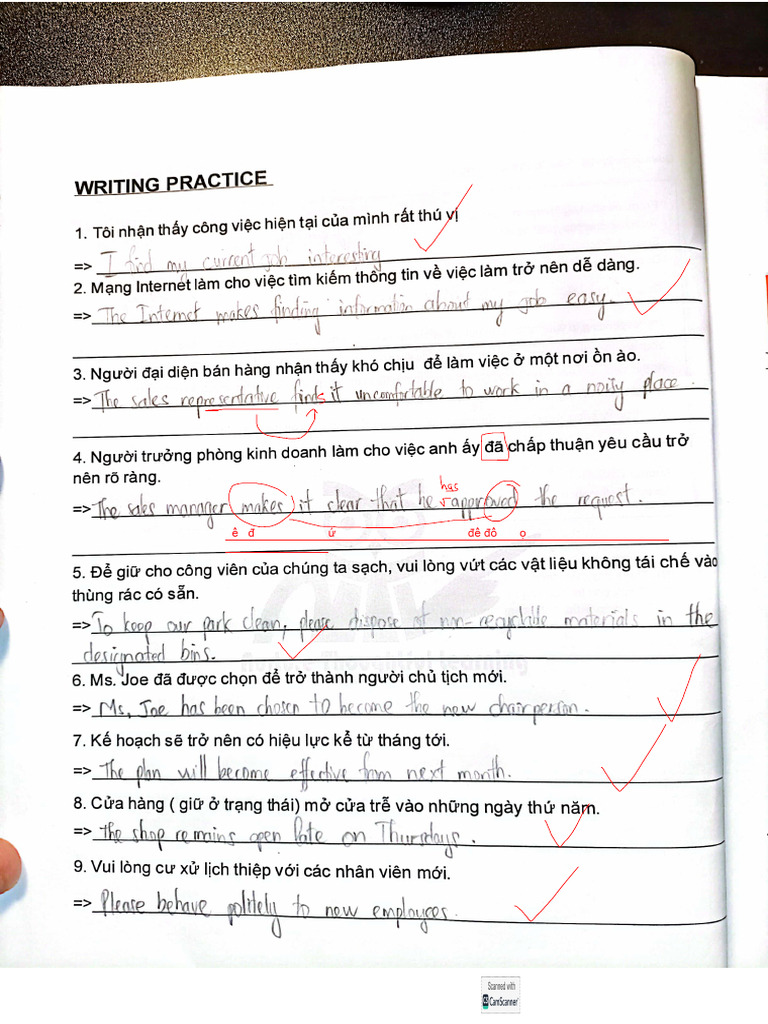 WRITING PRACTICE
1. Tôi nhận thấy công việc hiện tại của mình rất thú vị
=> I find my current job interesting
2. Mạng Internet làm cho việc tìm kiếm thông tin về việc làm trở nên dễ dàng.
=> The Internet makes finding information about my job easy.
3. Người đại diện bán hàng nhận thấy khó chịu để làm việc ở một nơi ồn ào.
=> The sales representative finds it uncomfortable to work in a noisy place.
4. Người trưởng phòng kinh doanh làm cho việc anh ấy đã chấp thuận yêu cầu trở
nên rõ ràng.
has
=> The sales manager makes it clear that he approved the request.
ê đ ứ đê đô ọ
5. Để giữ cho công viên của chúng ta sạch, vui lòng vứt các vật liệu không tái chế vào
thùng rác có sẵn.
=> To keep our park clean, please dispose of non-recyclable materials in the
designated bins.
6. Ms. Joe đã được chọn để trở thành người chủ tịch mới.
=> Ms. Joe has been chosen to become the new chairperson.
7. Kế hoạch sẽ trở nên có hiệu lực kể từ tháng tới.
=> The plan will become effective from next month.
8. Cửa hàng ( giữ ở trạng thái) mở cửa trễ vào những ngày thứ năm.
=> The shop remains open late on Thursdays.
9. Vui lòng cư xử lịch thiệp với các nhân viên mới.
=> Please behave politely to new employees.
Scanned with
CS CamScanner